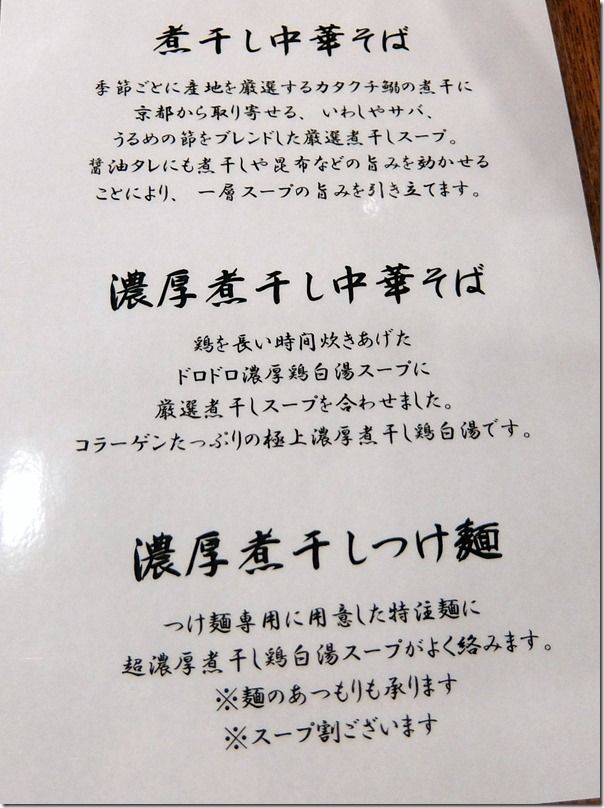 煮干し中華そば
季節ごとに産地を厳選するカタクチ鰯の煮干に
京都から取り寄せる、いわしやサバ、
うるめの節をブレンドした厳選煮干しスープ。
醤油タレにも煮干しや昆布などの旨みを効かせる
ことにより、一層スープの旨みを引き立てます。
濃厚煮干し中華そば
鶏を長い時間炊きあげた
ドロドロ濃厚鶏白湯スープに
厳選煮干しスープを合わせました。
コラーゲンたっぷりの極上濃厚煮干し鶏白湯です。
濃厚煮干しつけ麺
つけ麺専用に用意した特注麺に
超濃厚煮干し鶏白湯スープがよく絡みます。
※麺のあつもりも承ります
※スープ割ございます